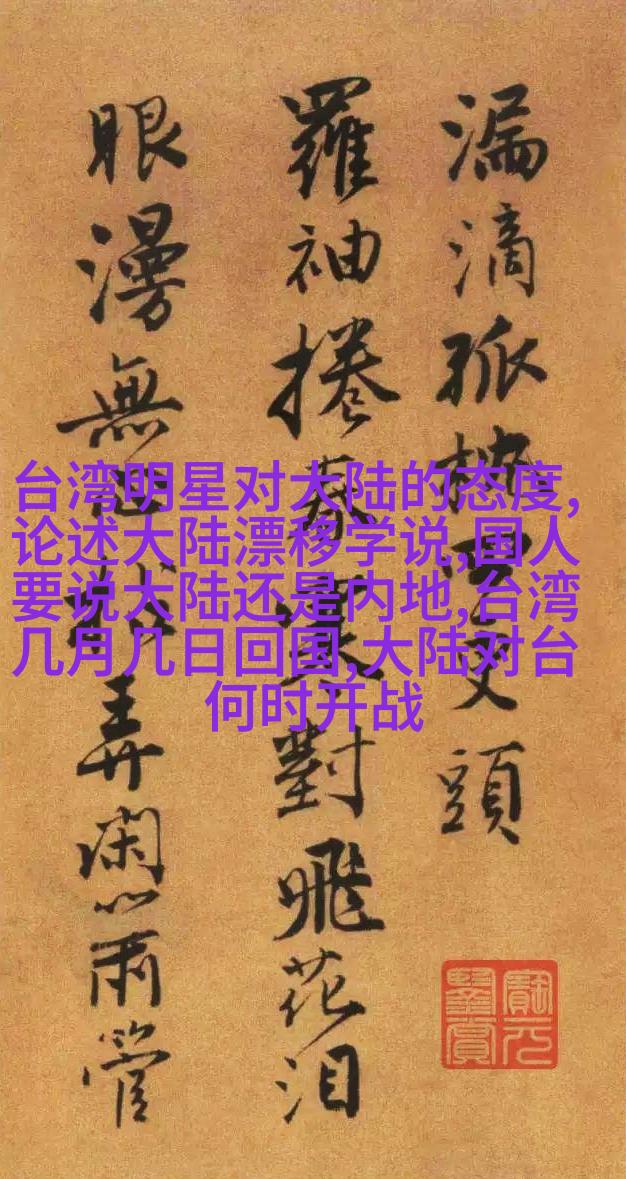 漏滴孤更頭
羅袖捲對飛花泪
眼漫無弄閑管
台湾明星对大陆的态度,
论述大陆漂移学说,国人
要说大陆还是内地,台湾
几月几日回国,大陆对台
何时开战